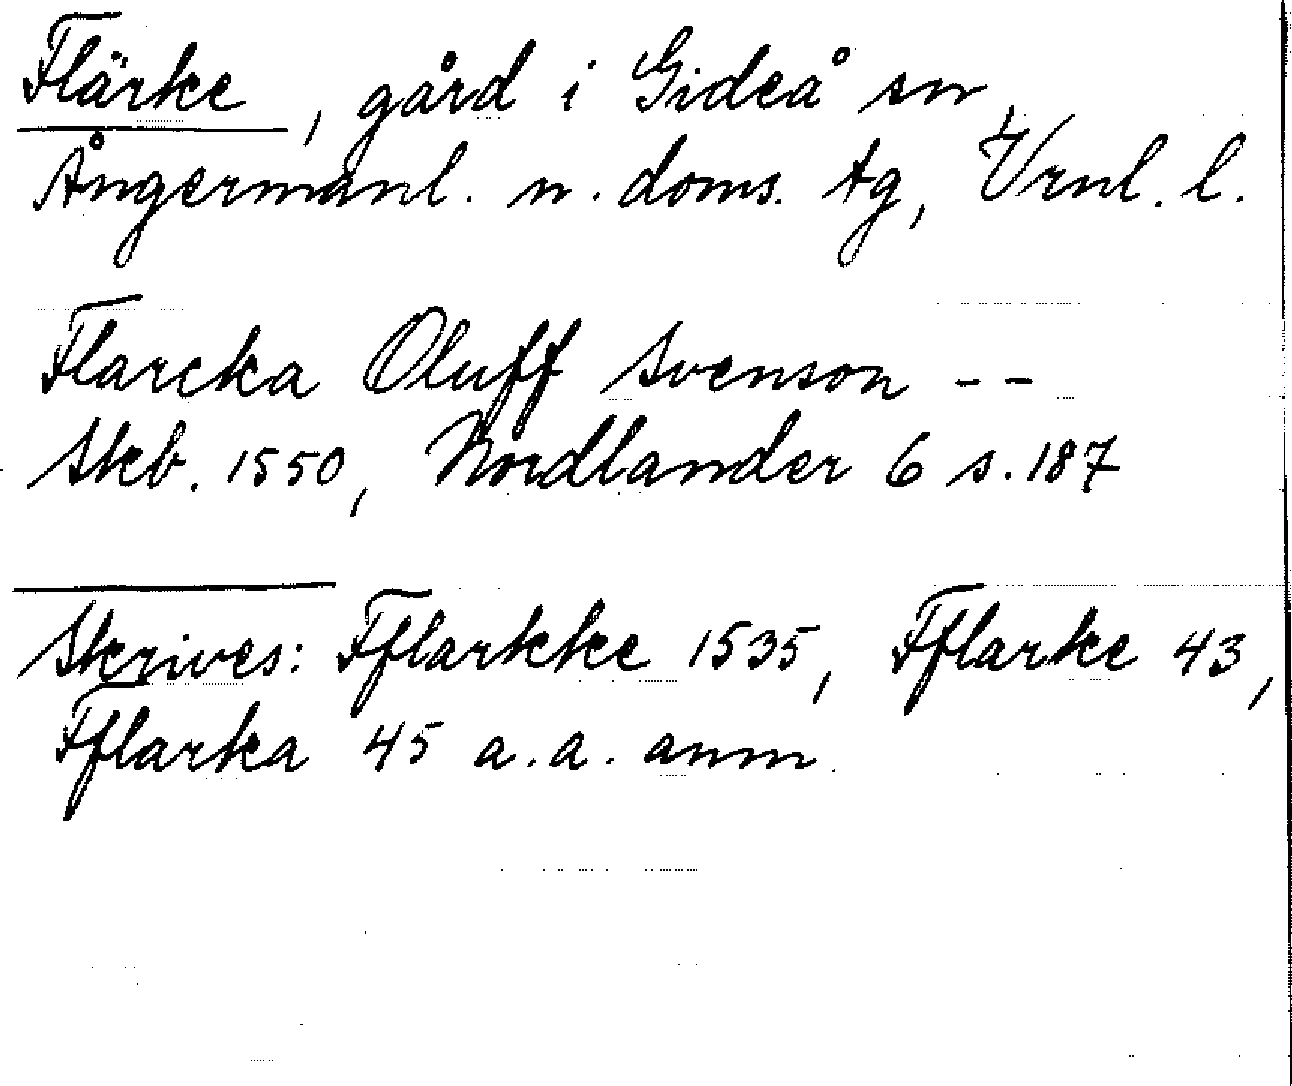 Flärke, gård i Gideå sn,
Ångermanl. n. doms. tg, Vrnl. l.
Flarcka Oluff Svenson --
Skb. 1550, Nordlander 6 s. 187
Skrives: Fflarkke 1535, Fflarke 43,
Fflarka 45 a.a. anm.